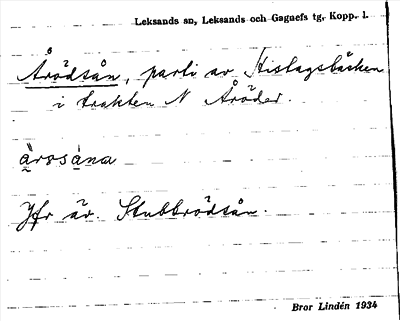 Leksands sn, Leksands och Gagnefs tg. Kopp. l.
Årödsån, parti av Histagsbäcken
i trakten N Åröder.
àrosåna
Jfr äv. Stubbrödsån.
Bror Lindén 1934